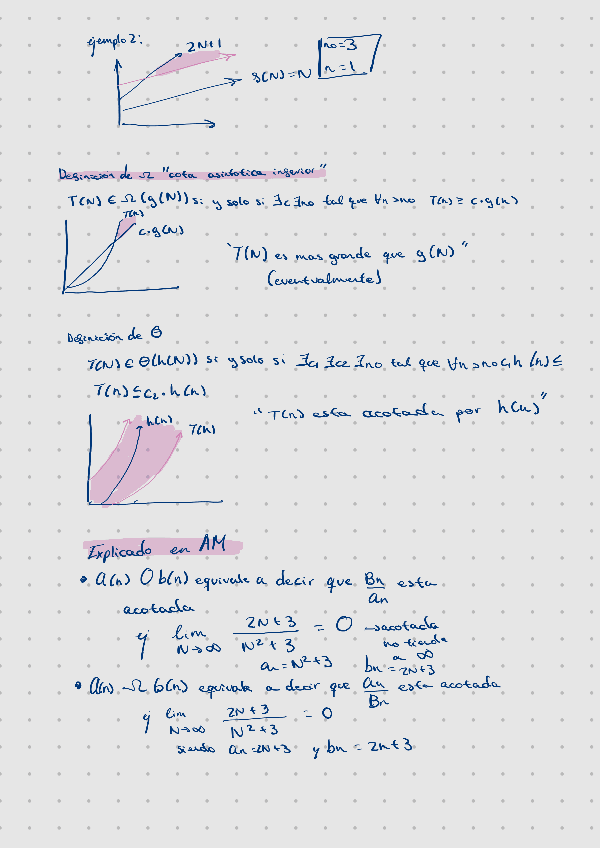 ejemplo 2:
2N+1
g(N) = N
no=3
n=1
Definición de Ω "cota asintotica inferior"
T(N) ∈ Ω(g(N)) si y solo si ∃c ∃no tal que ∀n>no T(n) ≥ c·g(n)
T(n)
c·g(N)
"T(N) es mas grande que g(N)"
(eventualmente)
Definición de Θ
T(N) ∈ Θ(h(N)) si y solo si ∃c1 ∃c2 ∃no tal que ∀n>no c1h(n) ≤
T(n) ≤ c2·h(n)
h(n)
T(n)
"T(n) esta acotada por h(n)"
Explicado en AM
• a(n) O b(n) equivale a decir que Bn/an esta
acotada
ej lim N→∞ 2N+3/N²+3 = 0 →acotada
no tiende
a ∞
an = N²+3 bn = 2N+3
• a(n) Ω b(n) equivale a decir que an/Bn esta acotada
ej lim N→∞ 2N+3/N²+3 = 0
siendo an=2N+3 y bn = 2n+3